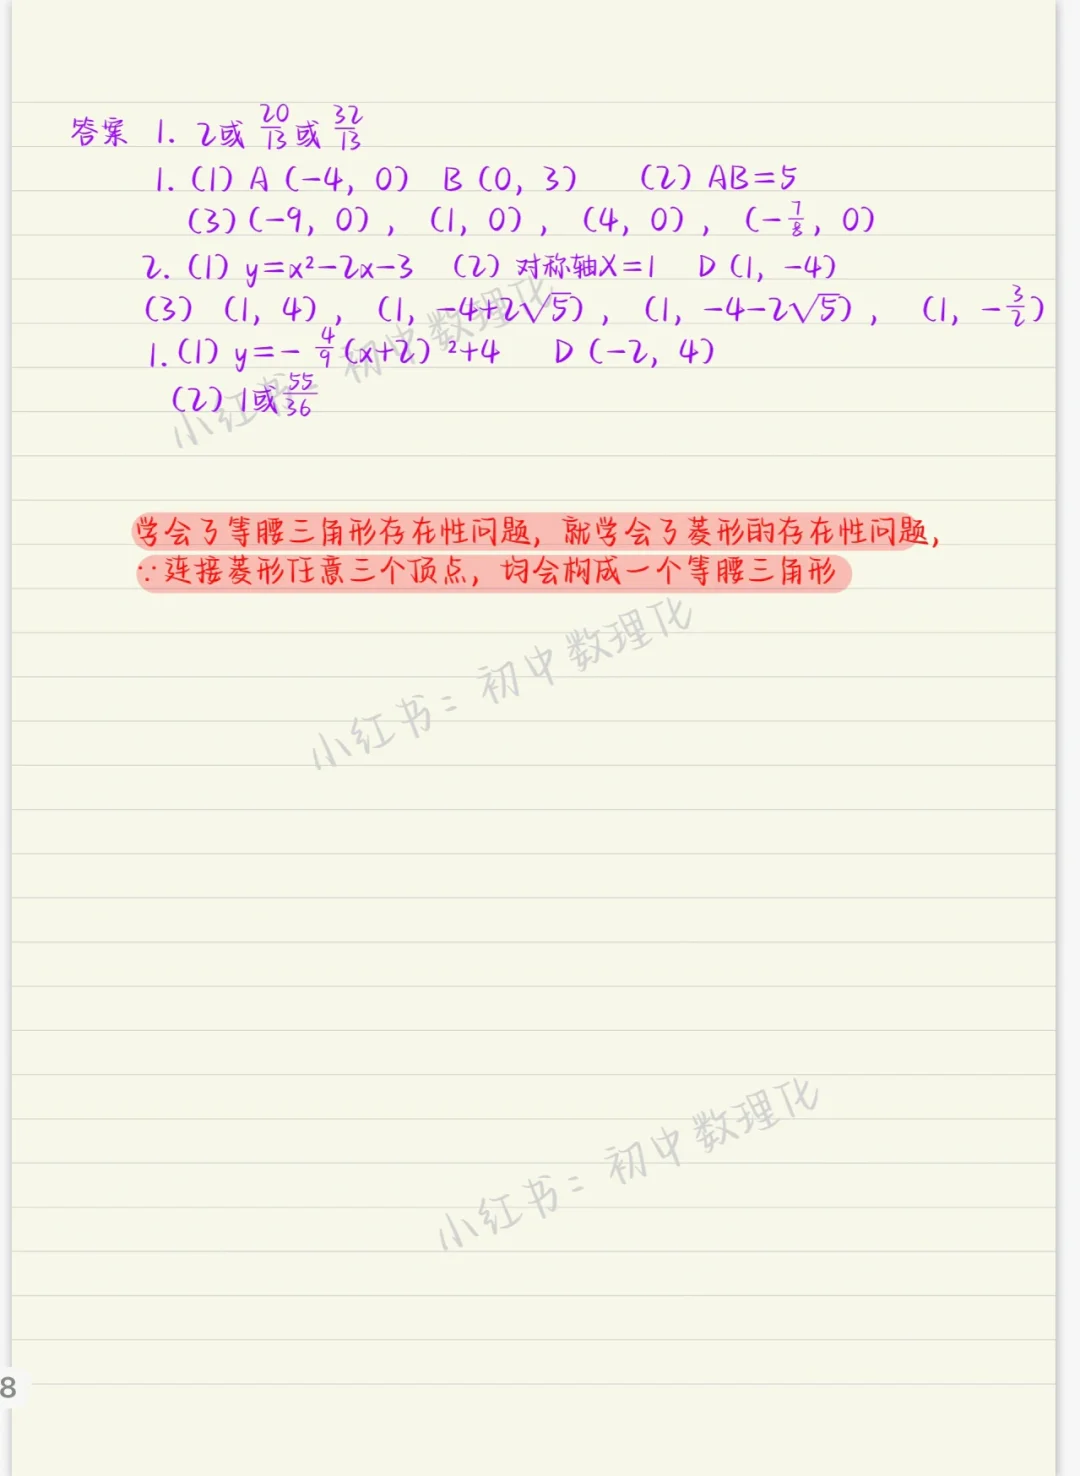 答案 1. 2或20/13或32/13
1. (1) A (-4, 0) B (0, 3) (2) AB=5
(3) (-9, 0), (1, 0), (4, 0), (-7/8, 0)
2. (1) y=x²-2x-3 (2) 对称轴X=1 D (1, -4)
(3) (1, 4), (1, -4+2√5), (1, -4-2√5), (1, -3/2)
1. (1) y=-4/9(x+2)²+4 D (-2, 4)
(2) 1或55/36
小红书:初中数理化
学会了等腰三角形存在性问题, 就学会了菱形的存在性问题,
∵连接菱形任意三个顶点, 均会构成一个等腰三角形
小红书:初中数理化
小红书:初中数理化
8